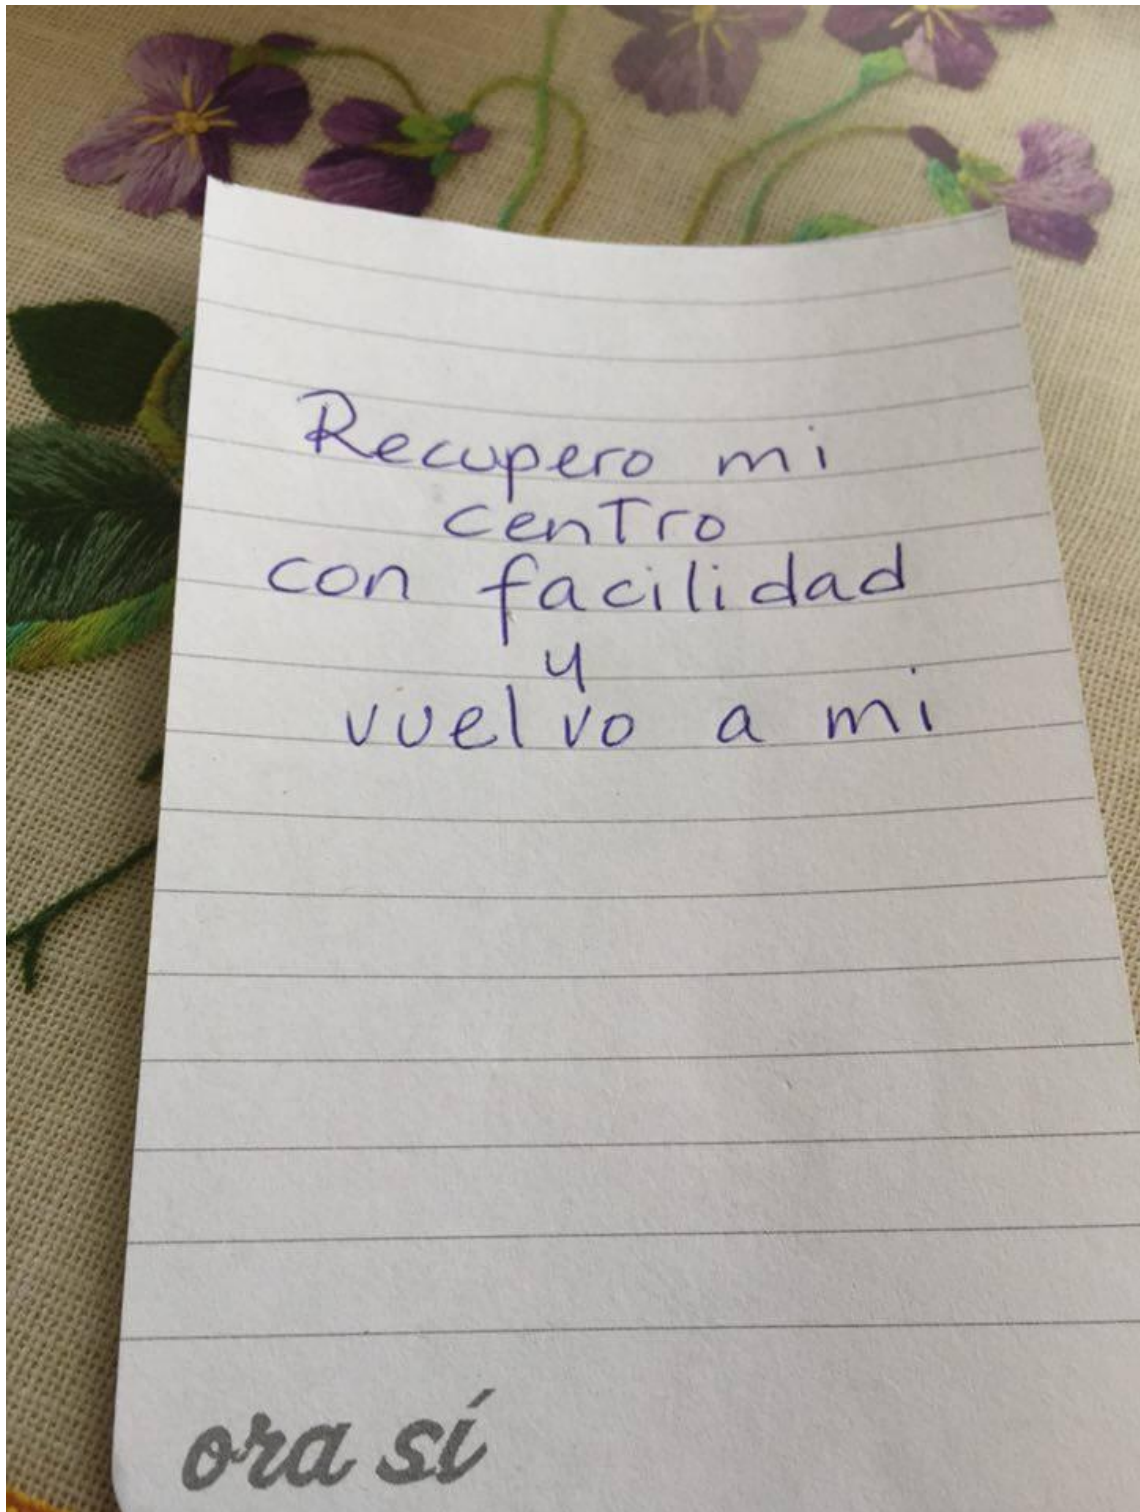 Recupero mi
centro
con facilidad
y
vuelvo a mi
ora sí